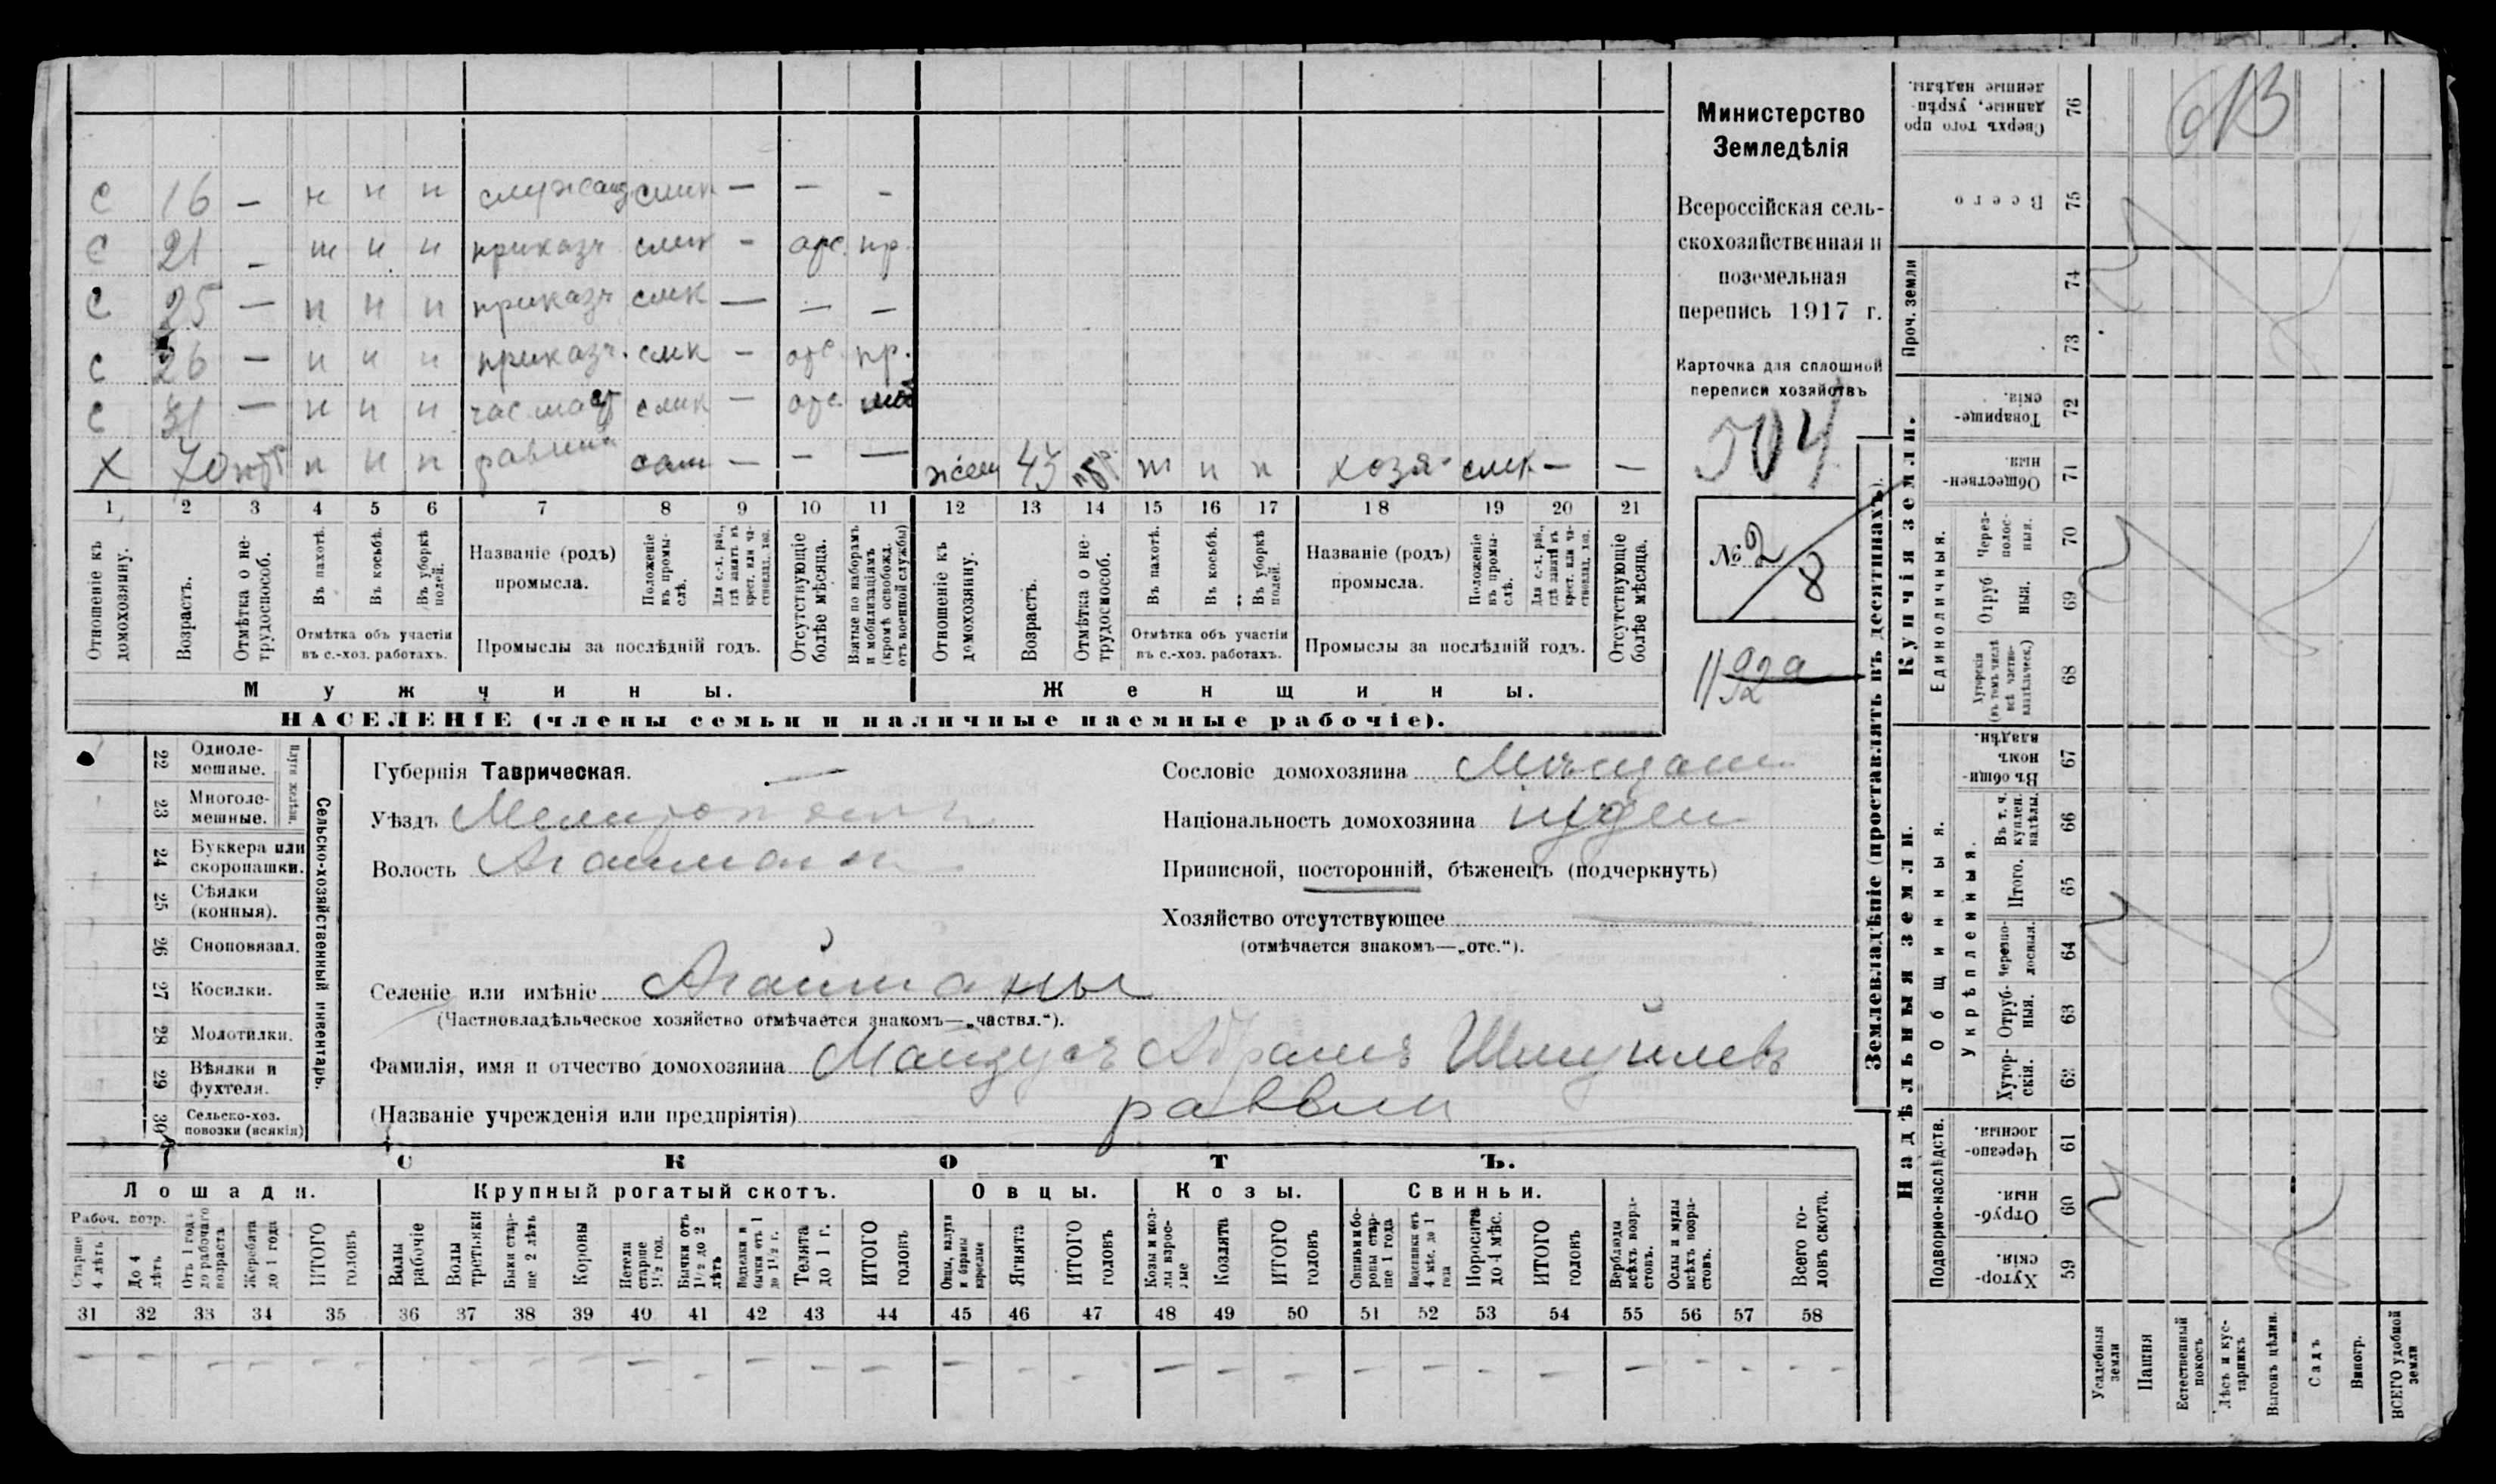 С 16 — н н н служащ служ — — —
С 21 — н н н приказч служ — отс. пр.
С 25 — н н н приказч служ — — —
С 26 — н н н приказч. служ — отс. пр.
С 31 — н н н час маст служ — отс. моб
Х 70 нтр н н н раввин сам — — — жен 45 нтр. н н н хозя служ — —
1 2 3 4 5 6 7 8 9 10 11 12 13 14 15 16 17 18 19 20 21
Отношеніе къ домохозяину.
Возрастъ.
Отмѣтка о не-трудоспособ.
Въ пахотѣ.
Въ косьбѣ.
Въ уборкѣ полей.
Отмѣтка объ участіи
въ с.-хоз. работахъ.
Названіе (родъ)
промысла.
Положеніе въ промы-слѣ.
Для с.-х. раб., гдѣ занятъ въ крест. или ча-стновлад. хоз.
Промыслы за послѣдній годъ.
Отсутствующіе болѣе мѣсяца.
Взятые по наборамъ и мобилизаціямъ (кромѣ освобожд. отъ военной службы)
Отношеніе къ домохозяину.
Возрастъ.
Отмѣтка о не-трудоспособ.
Въ пахотѣ.
Въ косьбѣ.
Въ уборкѣ полей.
Отмѣтка объ участіи
въ с.-хоз. работахъ.
Названіе (родъ)
промысла.
Положеніе въ промы-слѣ.
Для с.-х. раб., гдѣ занятъ въ крест. или ча-стновлад. хоз.
Промыслы за послѣдній годъ.
Отсутствующіе болѣе мѣсяца.
Мужчины.
Женщины.
НАСЕЛЕНІЕ (члены семьи и наличные наемные рабочіе).
Министерство
Земледѣлія
Всероссійская сель-
скохозяйственная и
поземельная
перепись 1917 г.
Карточка для сплошной
переписи хозяйствъ
504
№ 2/8
1192а
22 Одноле-
мешные.
23 Многоле-
мешные.
Плуги желѣзн.
24 Буккера или
скоропашки.
25 Сѣялки
(конныя).
26 Сноповязал.
27 Косилки.
28 Молотилки.
29 Вѣялки и
фухтеля.
30 Сельско-хоз.
повозки (всякія)
Сельско-хозяйственный инвентарь.
Губернія Таврическая.
Уѣздъ Мелитопольск
Волость Агайманск
Селеніе или имѣніе Агайманы
(Частновладѣльческое хозяйство отмѣчается знакомъ—„частвл.“).
Фамилія, имя и отчество домохозяина Майзусъ Абрамъ Шмуйлевъ
(Названіе учрежденія или предпріятія) раввин
Сословіе домохозяина Мѣщан
Національность домохозяина іудеи
Приписной, посторонній, бѣженецъ (подчеркнуть)
Хозяйство отсутствующее
(отмѣчается знакомъ—„отс.“).
СКОТЪ.
Лошади.
Крупный рогатый скотъ.
Овцы.
Козы.
Свиньи.
Рабоч. возр.
Старше 4 лѣтъ
До 4 лѣтъ
Отъ 1 года до рабочаго возраста
Жеребята до 1 года
ИТОГО головъ
Волы рабочіе
Волы третьяки
Быки стар-ше 2 лѣтъ
Коровы
Нетели старше 1½ год.
Бычки отъ 1½ до 2 лѣтъ
Подтелки и бычки отъ 1 до 1½ г.
Телята до 1 г.
ИТОГО головъ
Овцы, валухи и бараны взрослые
Ягнята
ИТОГО головъ
Козы и коз-лы взрос-лые
Козлята
ИТОГО головъ
Свиньи и бо-ровы стар-ше 1 года
Подсвинки отъ 4 мѣс. до 1 года
Поросята до 4 мѣс.
ИТОГО головъ
Верблюды всѣхъ возра-стовъ.
Ослы и мулы всѣхъ возра-стовъ.
Всего го-ловъ скота.
31 32 33 34 35 36 37 38 39 40 41 42 43 44 45 46 47 48 49 50 51 52 53 54 55 56 57 58
Землевладѣніе (проставлять въ десятинахъ).
Купчія земли.
Надѣльныя земли.
Сверхъ того про-данные, укрѣп-ленные надѣлы. 76
Всего 75
Проч. земли 74
73
Товарище-скія. 72
Обществен-ныя. 71
Единоличныя.
Через-полос-ныя. 70
Отруб-ныя. 69
Хуторскія (въ томъ числѣ всѣ частно-владѣльческ.) 68
Общинныя.
Въ общин-номъ владѣн. 67
Укрѣпленныя.
Въ т. ч. куплен. надѣлы. 66
Итого. 65
Черезпо-лосныя. 64
Отруб-ныя. 63
Хутор-скія. 62
Подворно-наслѣдств.
Черезпо-лосныя. 61
Отруб-ныя. 60
Хутор-скія. 59
Усадебныя земли
Пашня
Естественный покосъ
Лѣсъ и кус-тарникъ
Выгонъ цѣлин.
Садъ
Виногр.
ВСЕГО удобной земли